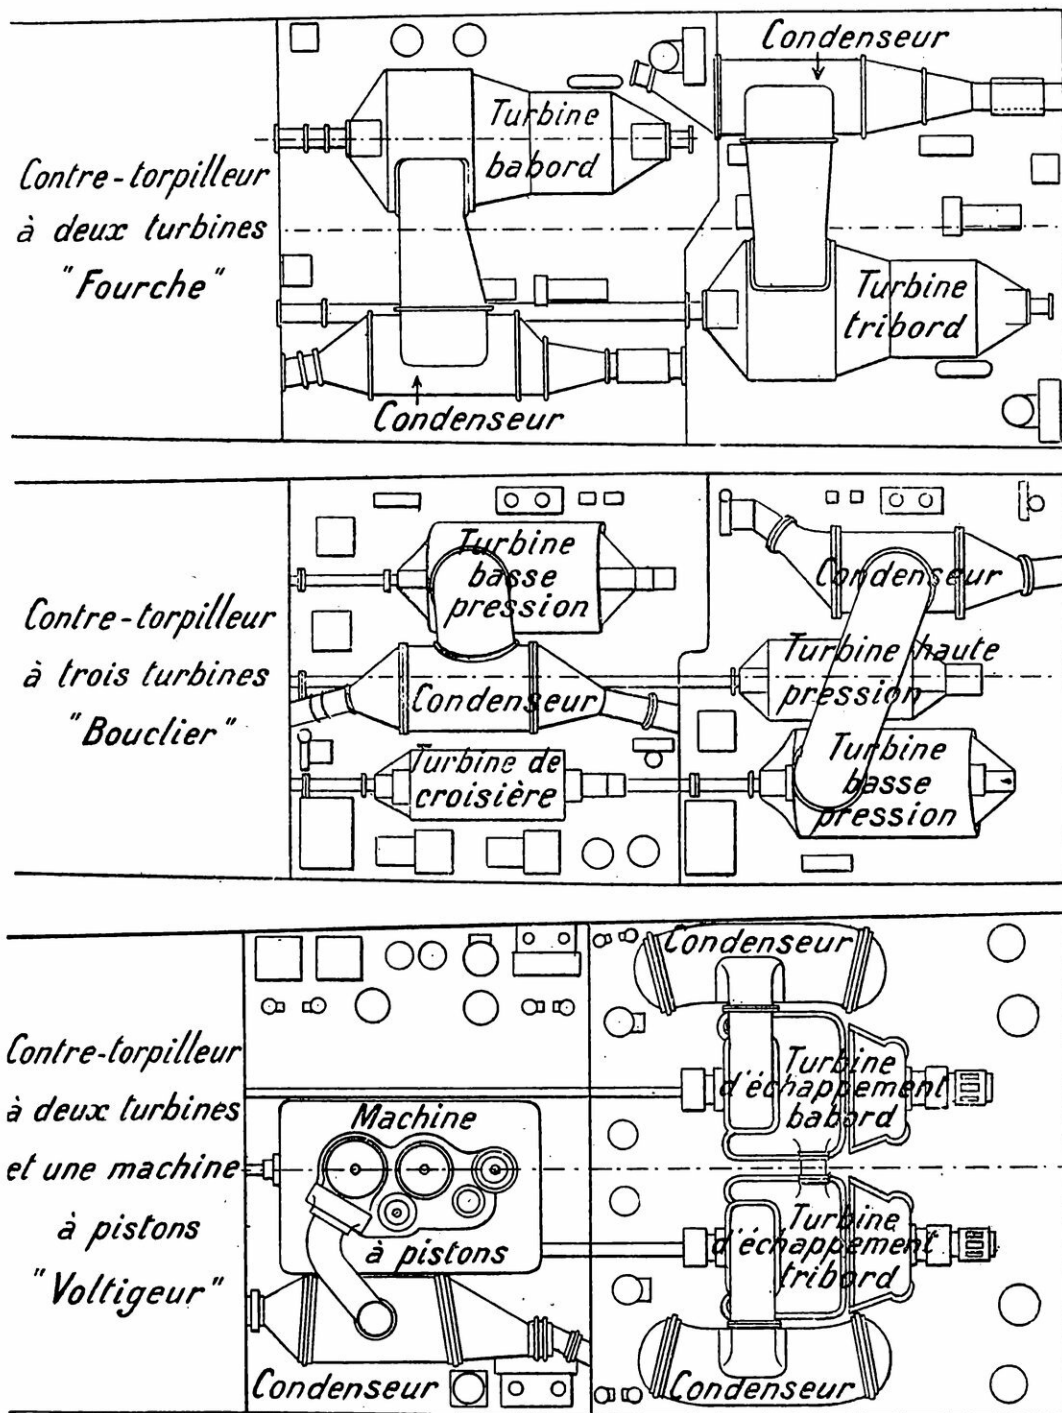 Contre-torpilleur
à deux turbines
"Fourche"
Turbine
babord
Condenseur
Condenseur
Turbine
tribord
Contre-torpilleur
à trois turbines
"Bouclier"
Turbine
basse
pression
Condenseur
Turbine de
croisière
Condenseur
Turbine haute
pression
Turbine
basse
pression
Contre-torpilleur
à deux turbines
et une machine
à pistons
"Voltigeur"
Machine
à pistons
Condenseur
Condenseur
Turbine
d'échappement
babord
Turbine
d'échappement
tribord
Condenseur